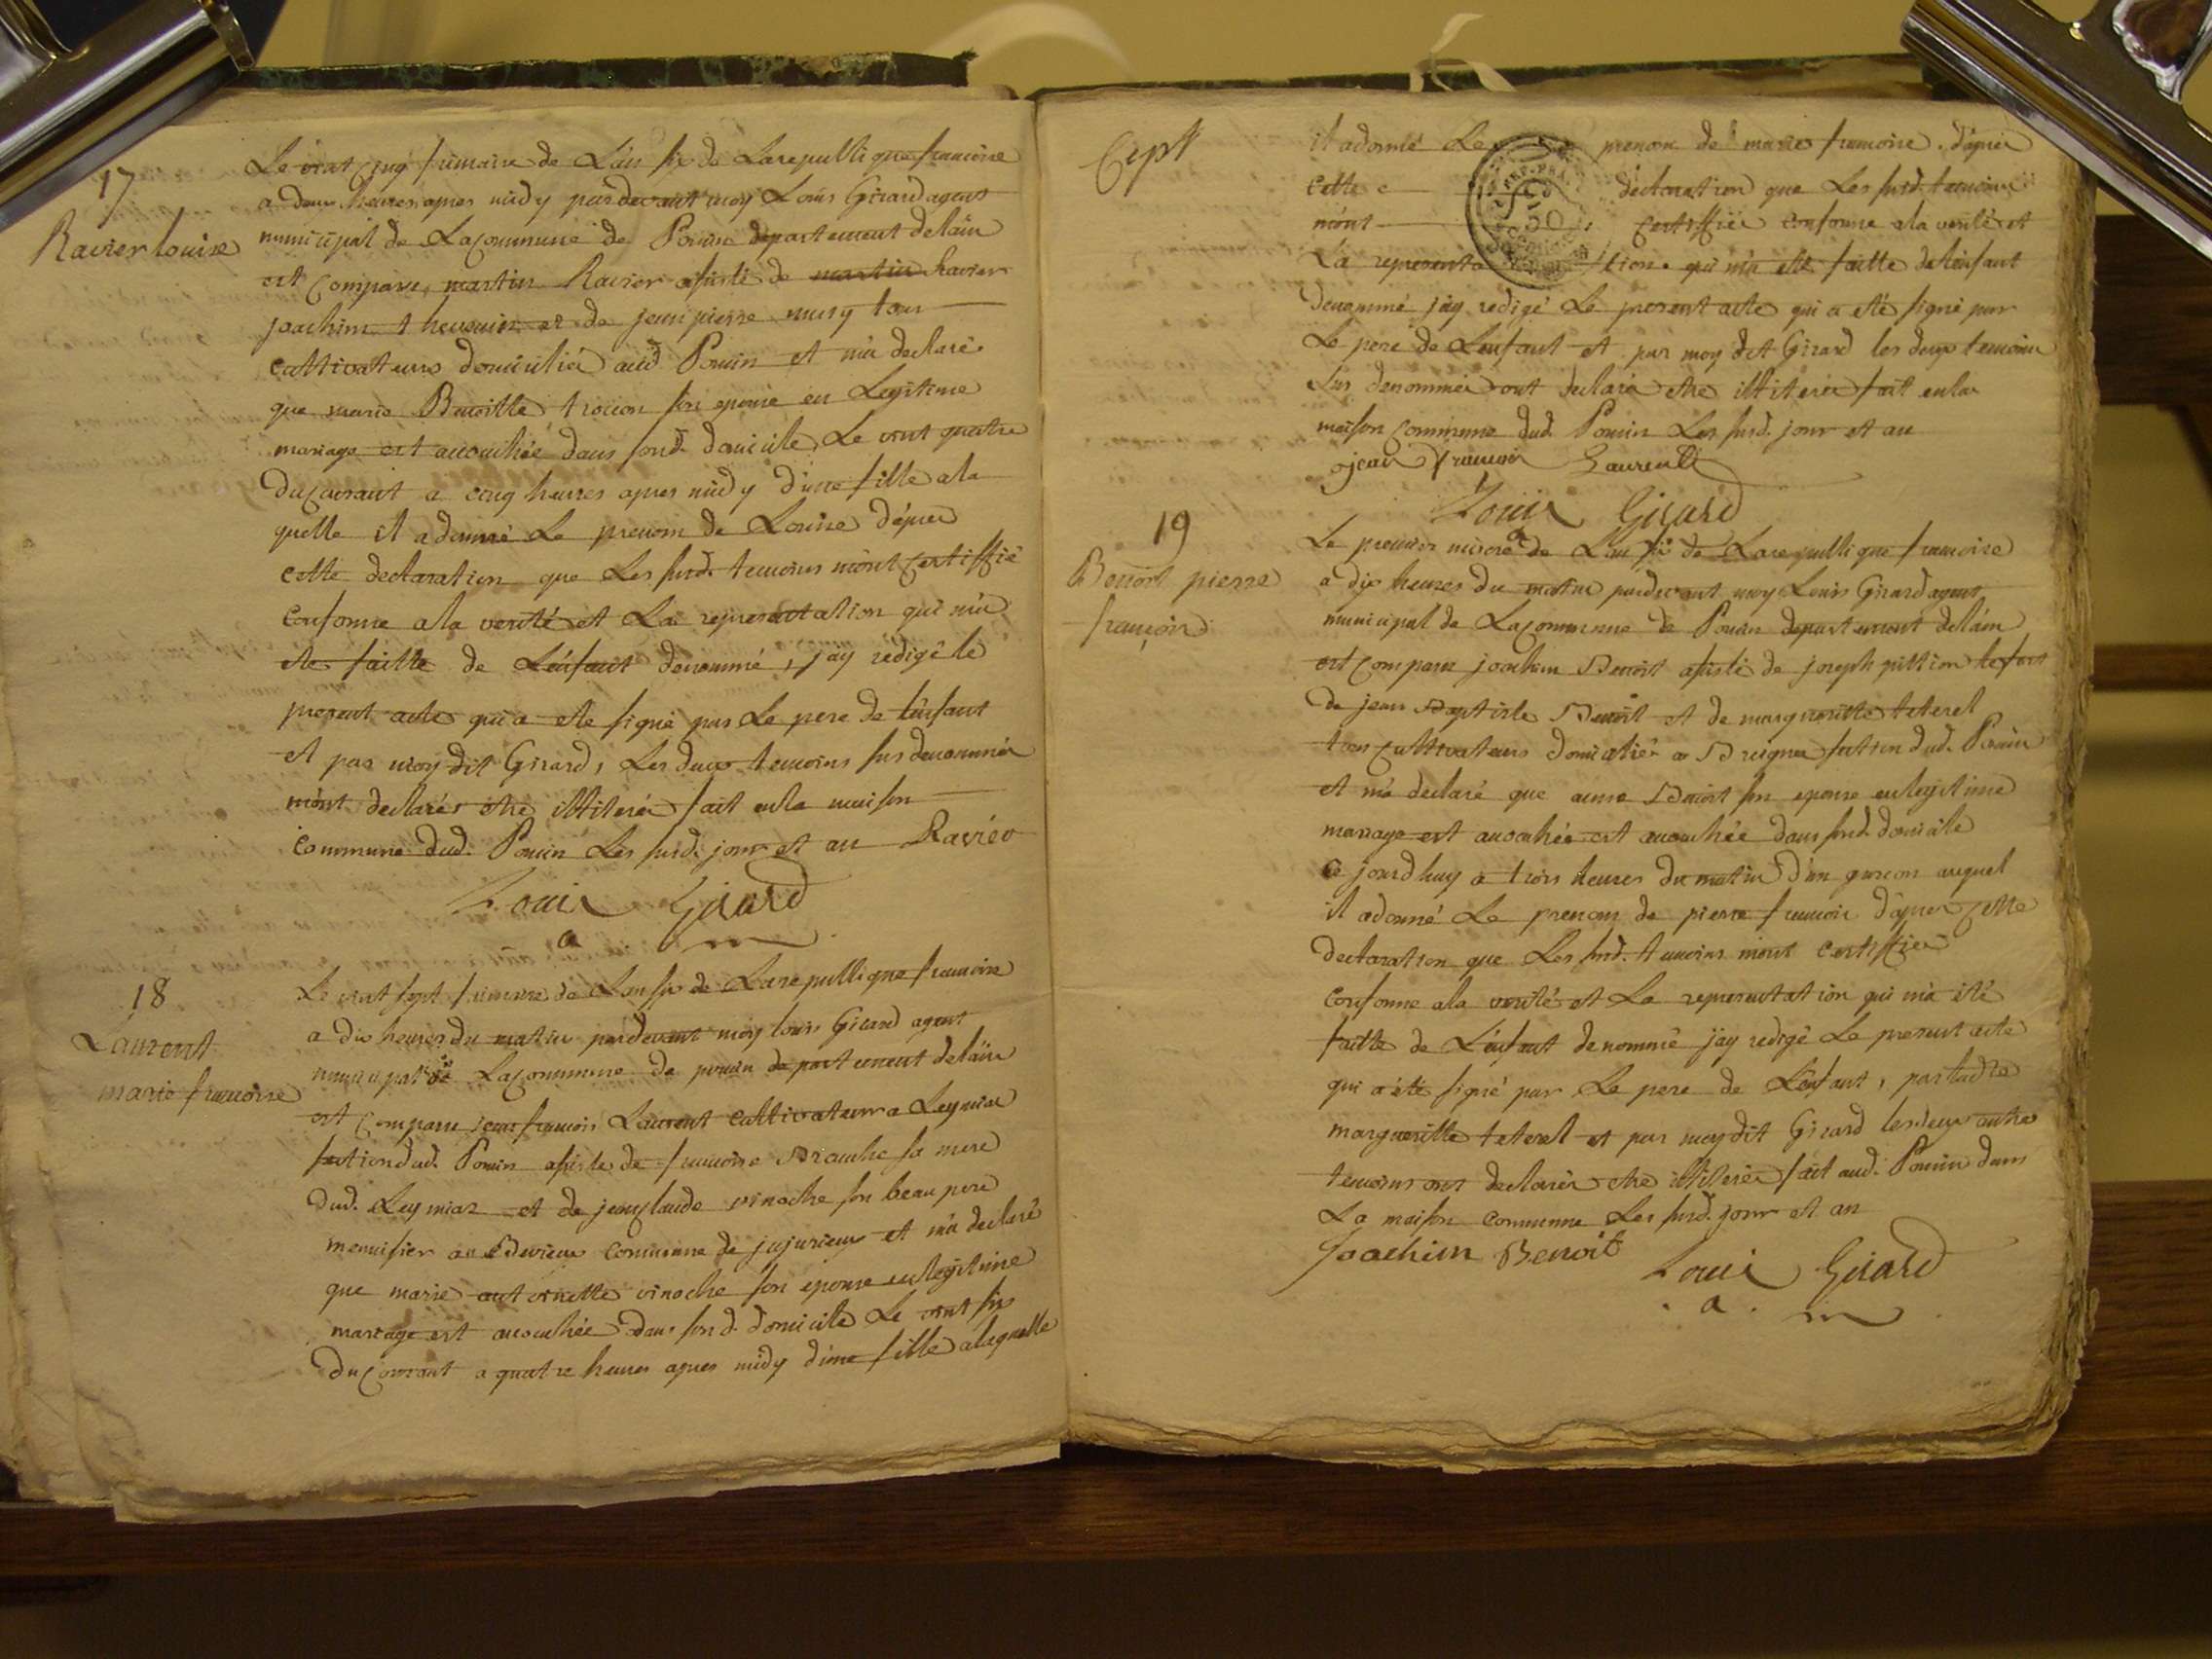 17
Ravier louise
Le vint cinq frimaire de L'an six de La republique francoise
a deux heures apres midy pardevant moy Louis Girard agent
municipal de La commune de Poncin departement de lain
est comparu, martin Ravier assisté de martin havier
joachim thevenin et de jean pierre mury tous
cultivateurs domiciliés aud Poncin et m'a declaré
que marie Benoitte son epouse en Legitime
mariage est accouchée dans sond. domicile, Le vint quatre
du courant a cinq heures apres midy d'une fille a la
quelle il a donné Le prenom de Louise d'apres
cette declaration que Les susd. temoins m'ont certiffié
conforme a la verité et La representation qui m'a
ete faitte de L'enfant denommé, j'ay redigé le
present acte qui a ete signé par Le pere de L'enfant
et par moy dit Girard, Les deux temoins sus denommés
m'ont declarés etre illiterés fait en la maison
commune dud. Poncin Les susd. jour et an Raviér
Louis Girard
a m
18
Laurent
marie francoise
Le vint sept frimaire de L'an six de La republique francoise
a dix heures du matin pardevant moy louis Girard agent
municipal de La commune de poncin departement de lain
est comparu jean francois Laurent cultivateur a Leymiar
section dud. Poncin assisté de francoise Branche sa mere
dud. Leymiar et de jean claude vinoche son beau pere
menuisier au commune de jujurieux et m'a declaré
que marie antoinette vinoche son epouse en legitime
mariage est accouchée dans sond. domicile Le vint six
du courant a quatre heures apres midy d'une fille a laquelle
Cept
il a donné Le prenom de marie francoise. d'apres
cette declaration que Les susd. temoins
m'ont certiffiée conforme a la verité et
La representation qui m'a eté faitte de L'enfant
denommé j'ay redigé Le present acte qui a eté signé par
Le pere de L'enfant et par moy dit Girard les deux temoins
sus denommés ont declaré etre illiterés fait en la
maison commune dud. Poncin Les susd. jour et an
jean francois Laurent
Louis Girard
a
19
Benoit pierre
francois
Le premier nivose de L'an six de La republique francoise
a dix heures du matin pardevant moy Louis Girard agent
municipal de La commune de Poncin departement de lain
est comparu joachim Benoit assisté de joseph pittion
de jean Baptiste Benoit et de margueritte teterel
tous cultivateurs domiciliés a Breignes section dud. Poncin
et m'a declaré que anne Benoit son epouse en legitime
mariage est accouchée est accouchée dans sond. domicile
ce jourd huy a trois heures du matin d'un garcon auquel
il a donné Le prenom de pierre francois d'apres cette
declaration que Les susd. temoins m'ont certiffiée
conforme a la verité et La representation qui m'a été
faitte de L'enfant denommé j'ay redigé Le present acte
qui a été signé par Le pere de L'enfant, par ladte
margueritte teterel et par moy dit Girard les deux autres
temoins ont declarés etre illiterés fait aud. Poncin dans
La maison commune Les susd. jour et an
Joachim Benoit Louis Girard
a m